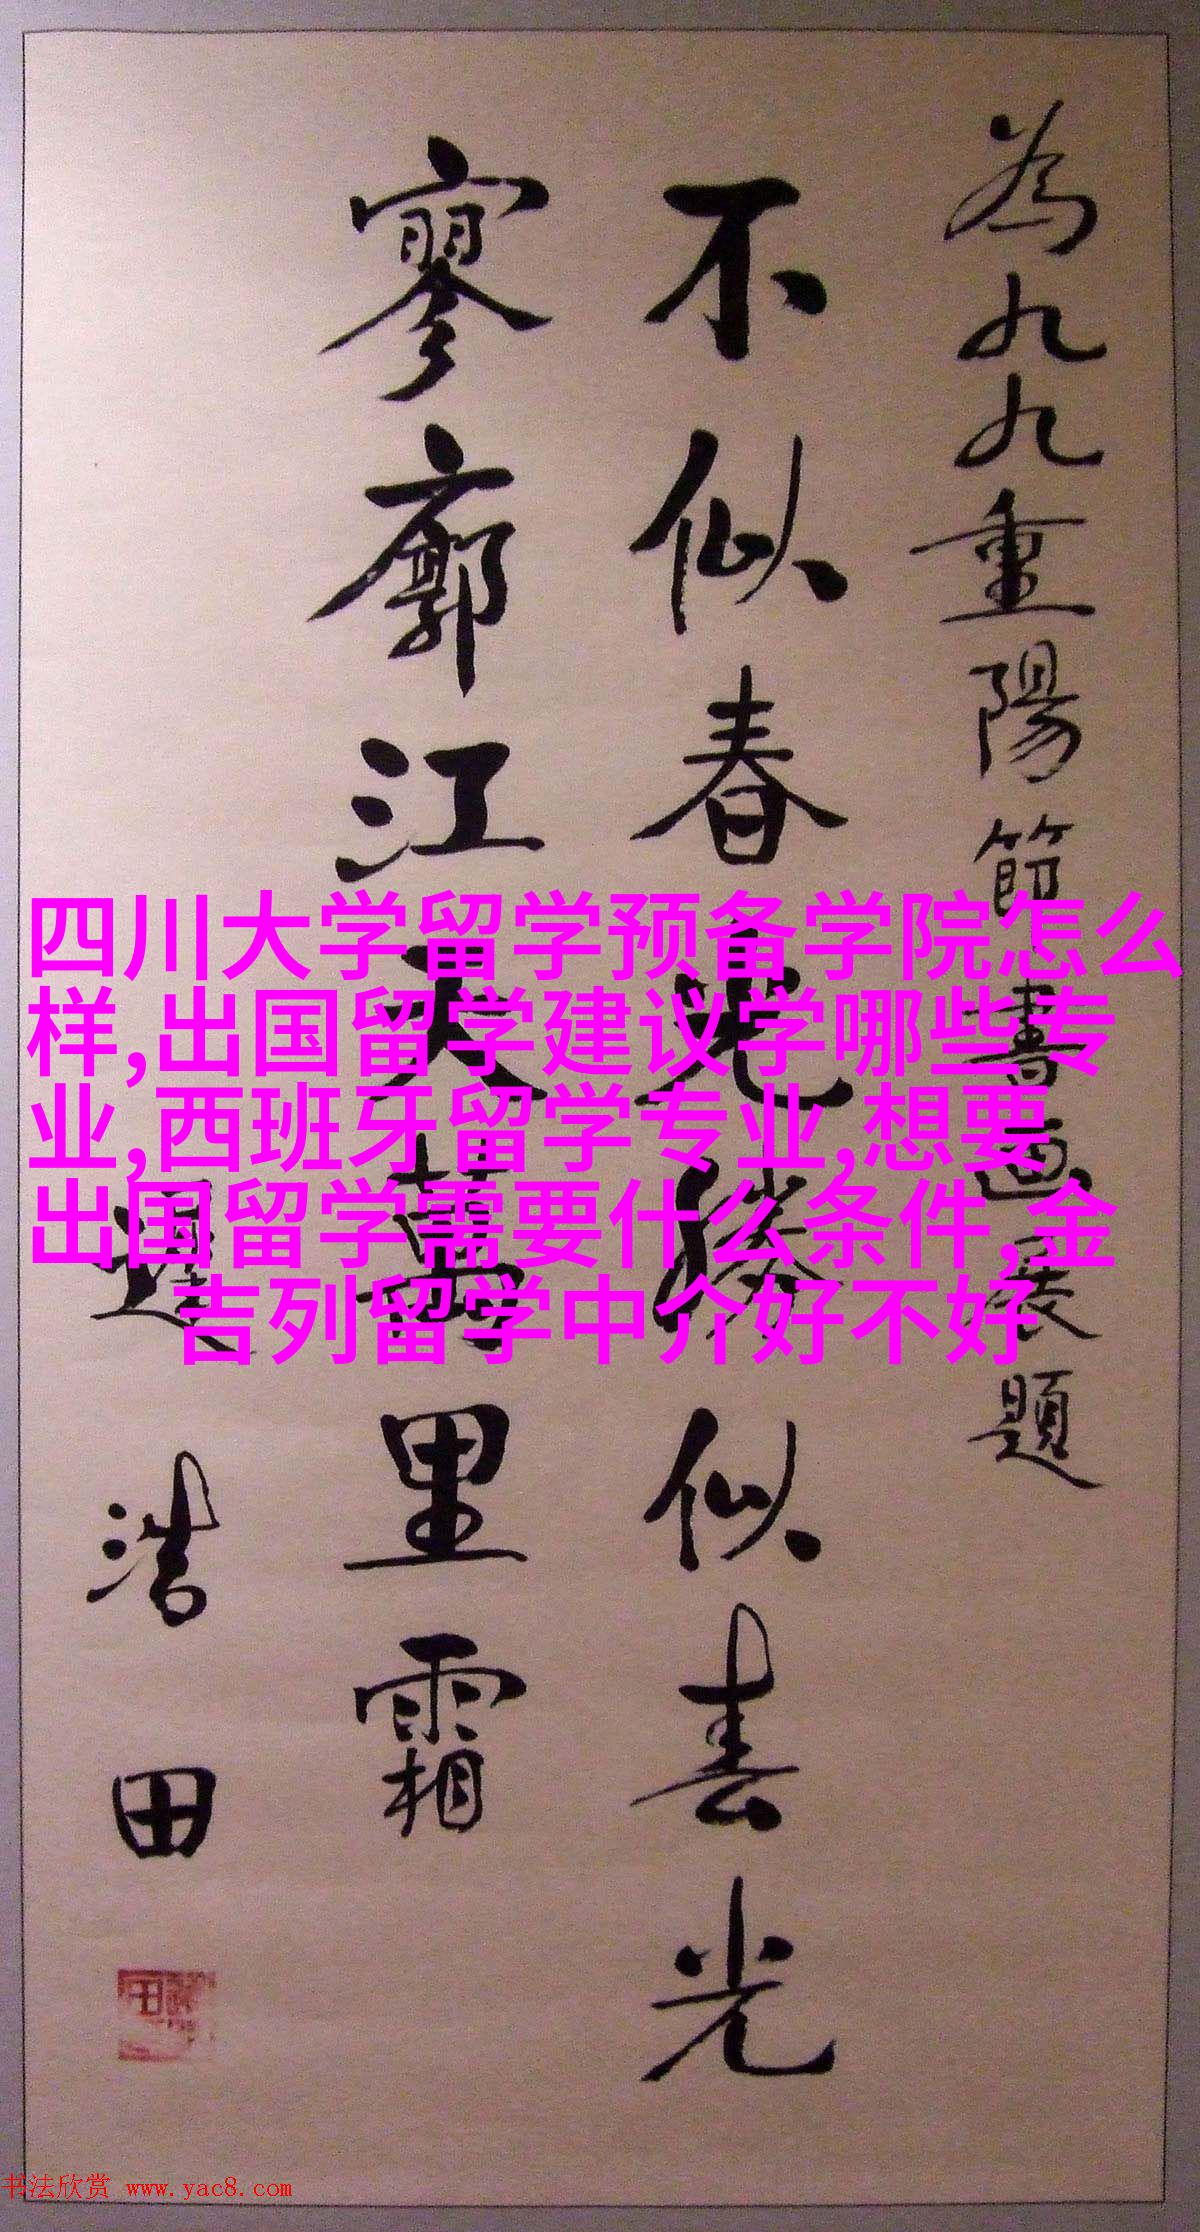 為九九重陽節書画展題
不似春光勝似春光
寥廓江天萬里霜
浩田
四川大学留学预备学院怎么
样,出国留学建议学哪些专
业,西班牙留学专业,想要
出国留学需要什么条件,金
吉列留学中介好不好
书法欣赏 www.yac8.com